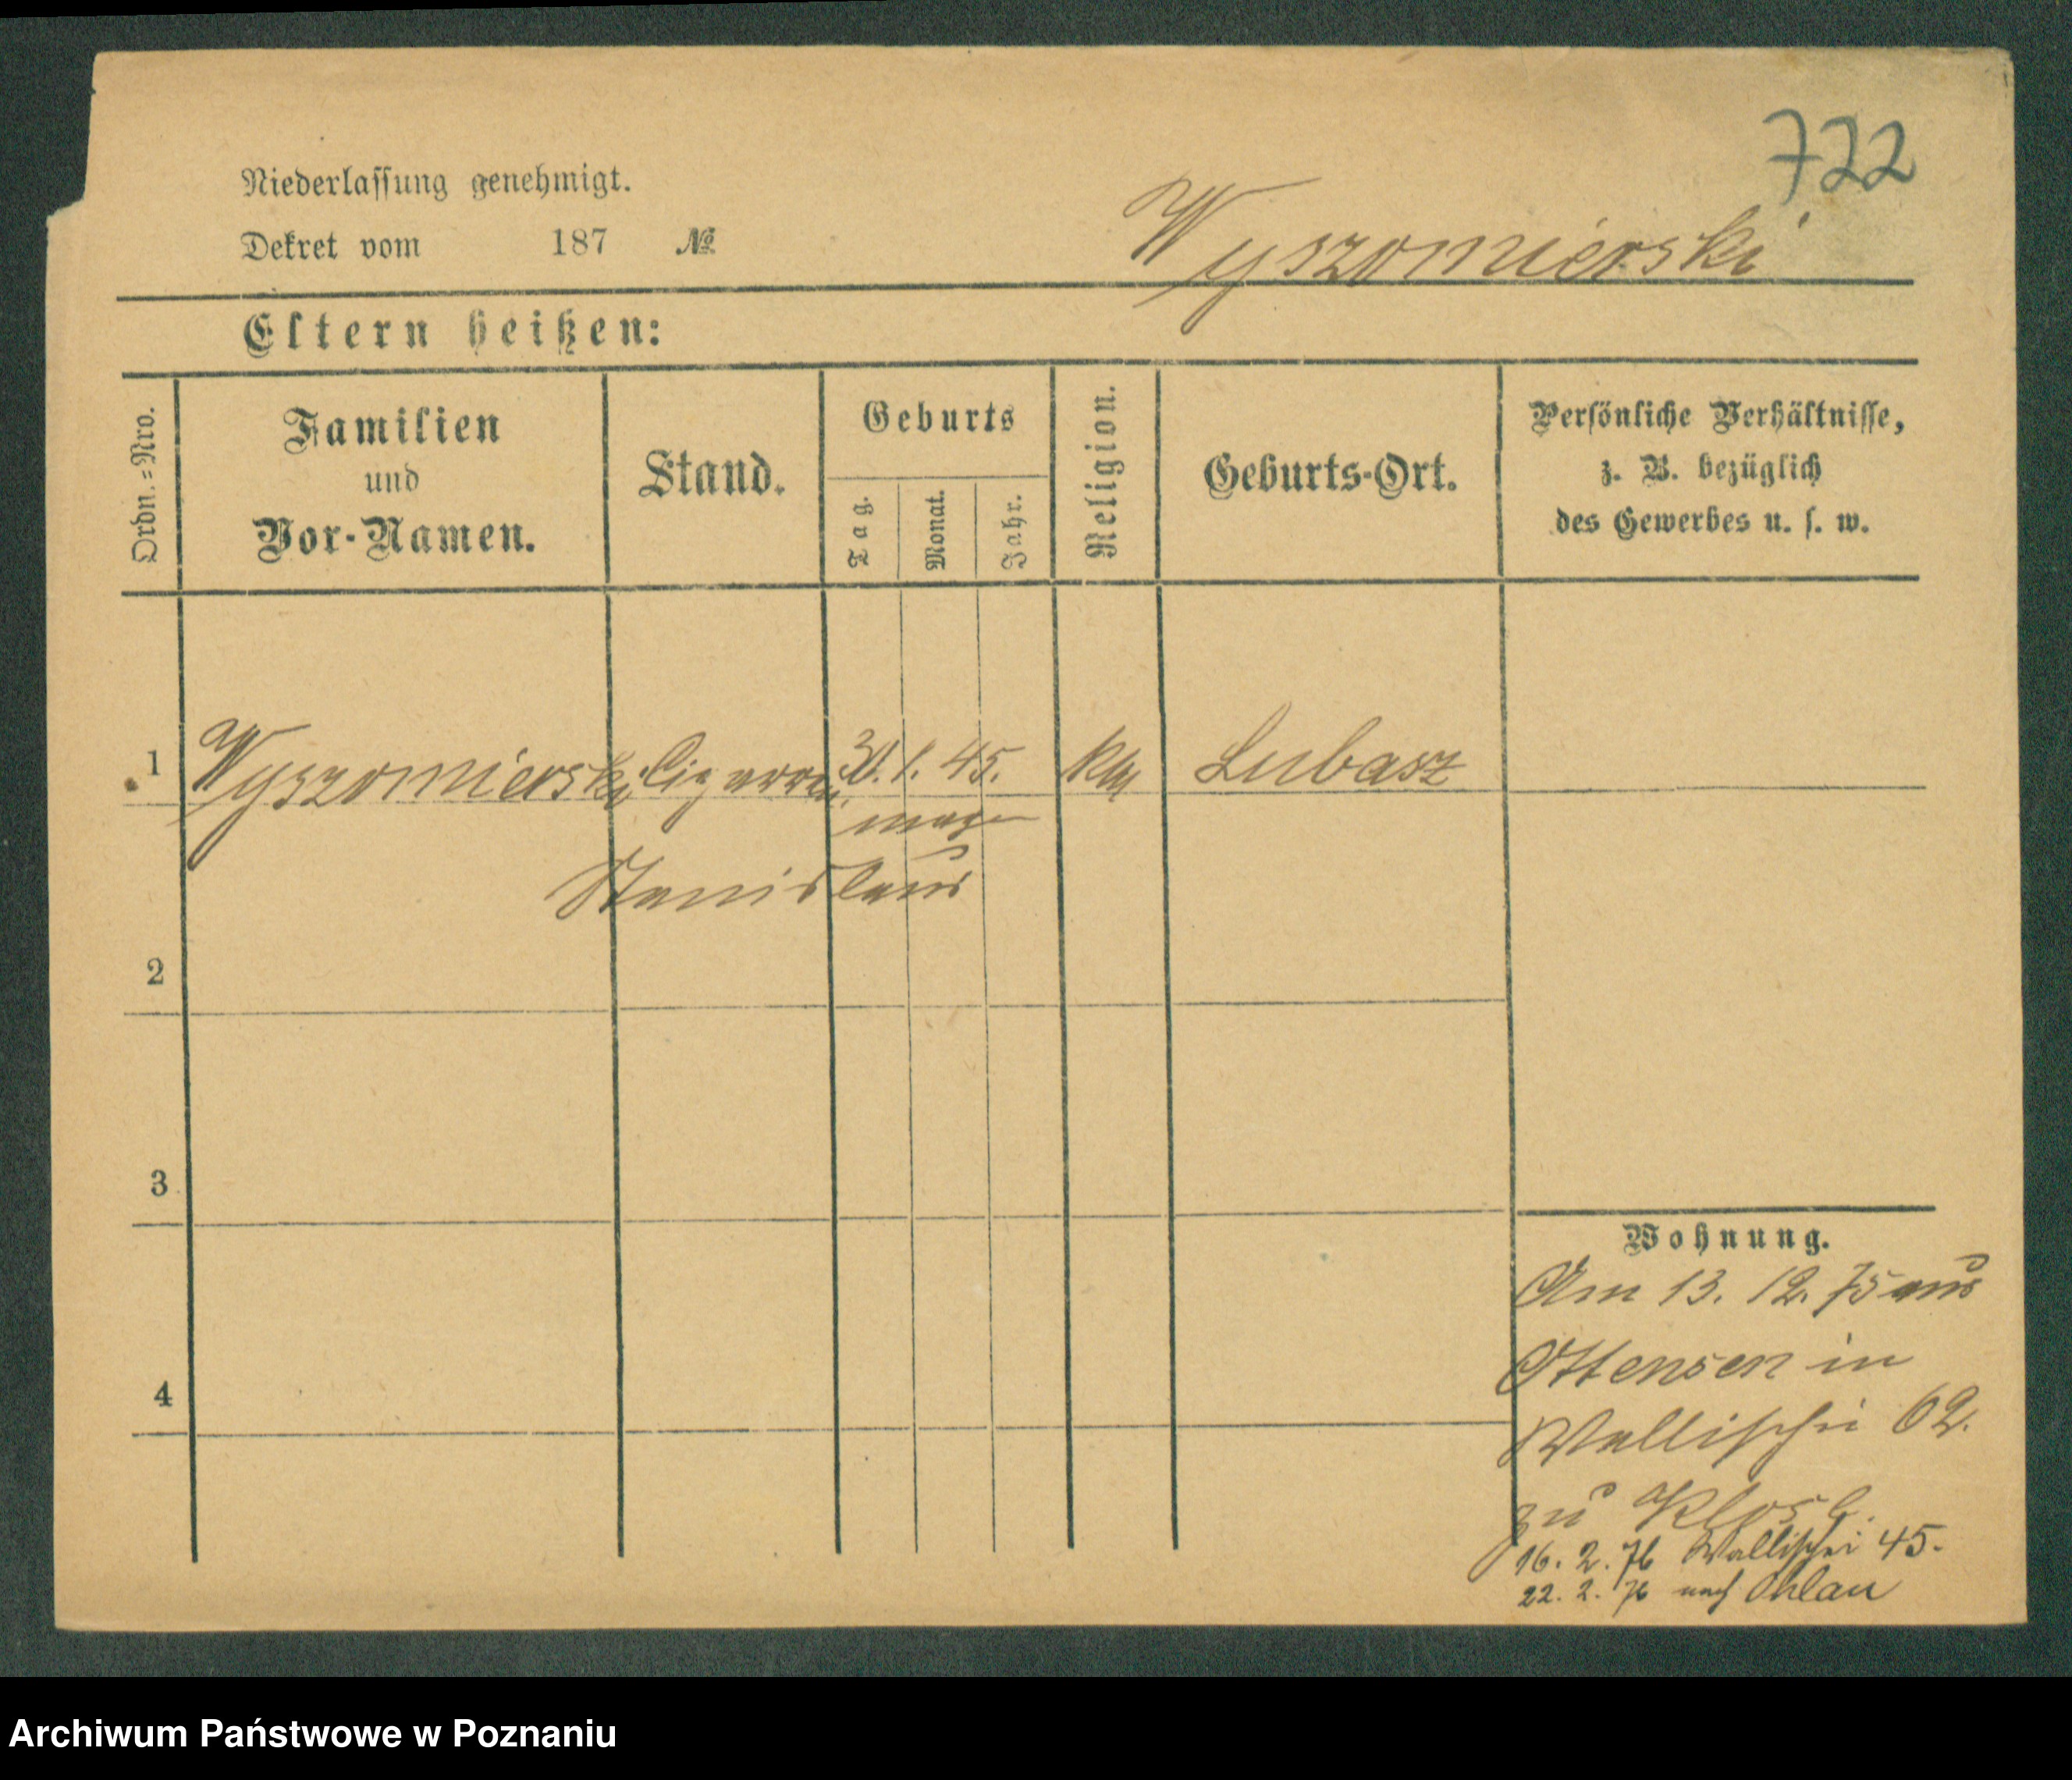 722
Niederlassung genehmigt.
Dekret vom 187 №
Wyszomierski
Eltern heißen:
Ordn.=Nro.
Familien
und
Vor-Namen.
Stand.
Geburts
Tag.
Monat.
Jahr.
Religion.
Geburts-Ort.
Persönliche Verhältnisse,
z. B. bezüglich
des Gewerbes u. s. w.
1 Wyszomierski Cigarren 30. 1. 45. kth Lubasz
Stanislaus
2
3
4
Wohnung.
Am 13. 12. 75 aus
Ottensen in
Wallischei 62.
zu
16. 2. 76 Wallischei 45.
22. 2. 76 nach Ohlau
Archiwum Państwowe w Poznaniu